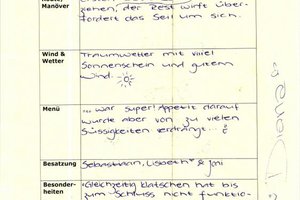 Manöver
ziehen, der Rest wirft über-
fordert das Seil um sich.
Wind &
Wetter
Traumwetter mit viiiel
Sonnenschein und gutem
Wind...
Menü
...war super! Appetit darauf
wurde aber von zu vielen
Süssigkeiten verdrängt...
Besatzung
Sebastiaan, Lisbeth & Jmi
Besonder-
heiten
Gleichzeitig klatschen hat bis
zum Schluss nicht funktio-